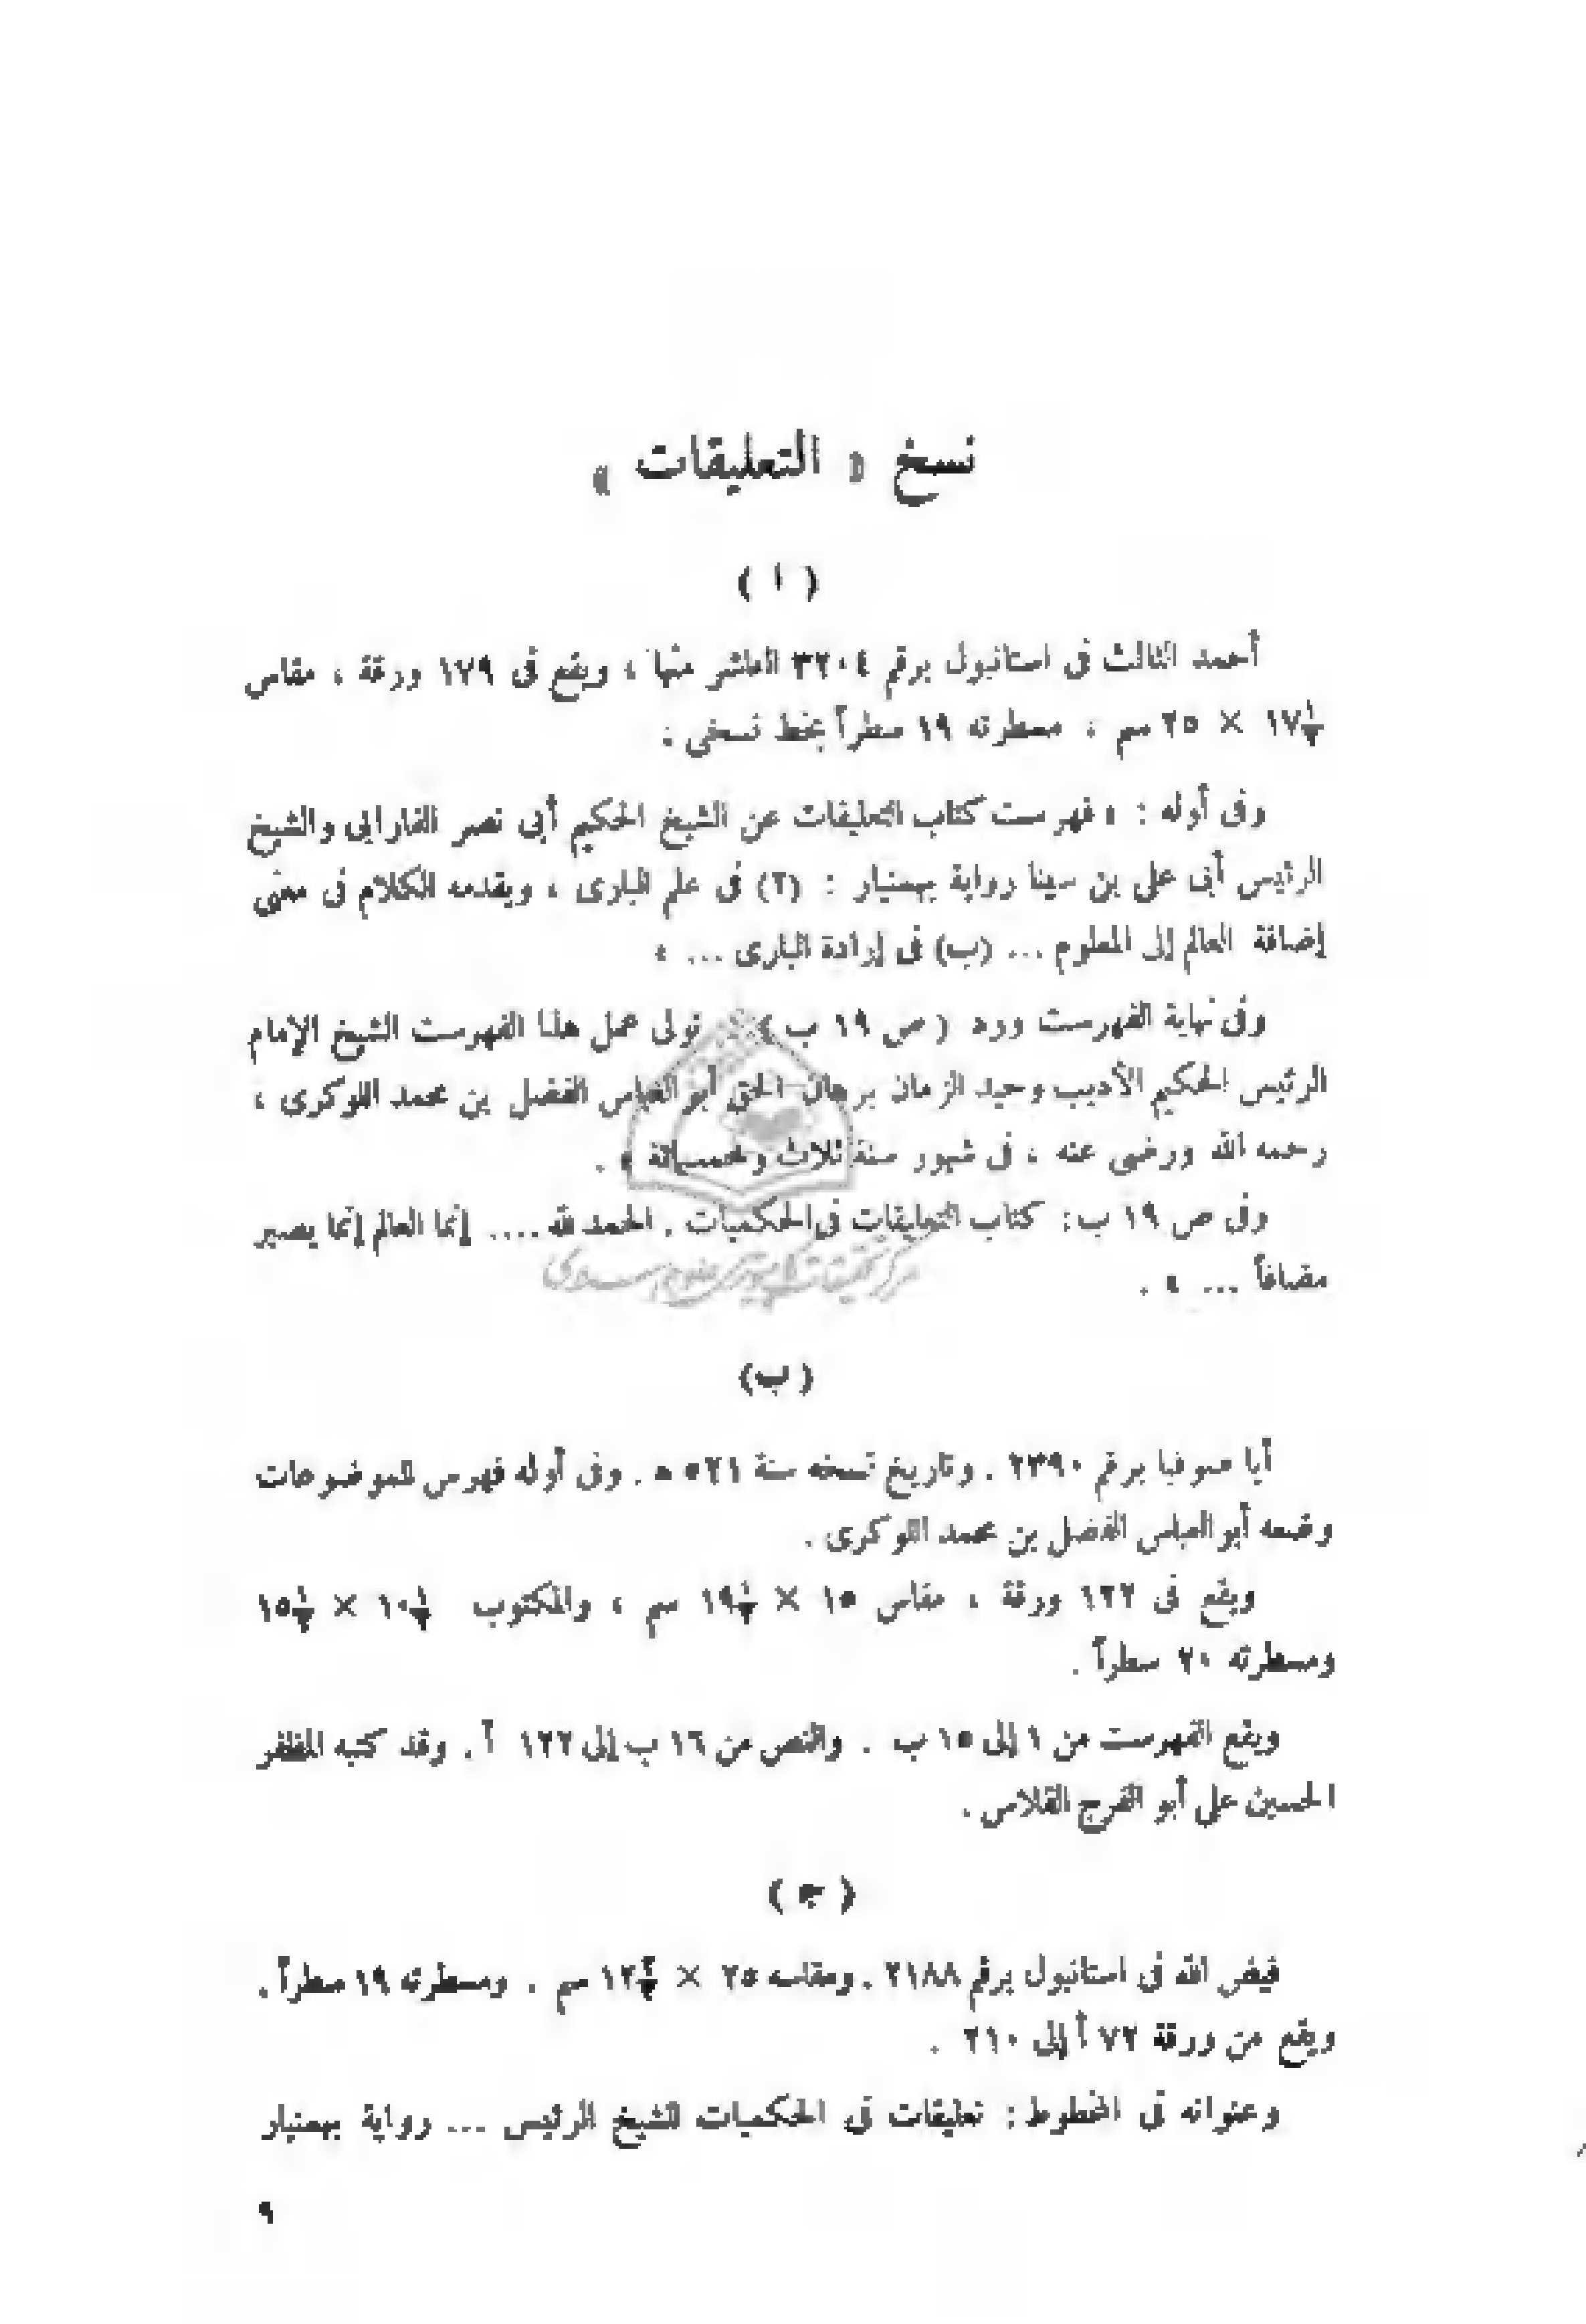 نسخ « التعليقات »
( ا )
أحمد الثالث فى استانبول برقم ٣٢٠٤ العاشر منها ، ويقع فى ١٧٩ ورقة ، مقاس
١٧½ × ٢٥ سم ، مسطرته ١٩ سطراً بخط نسخى .
وفى أوله : « فهرست كتاب التعليقات عن الشيخ الحكيم أبى نصر الفارابى والشيخ
الرئيس أبى على بن سينا رواية بهمنيار : (٢) فى علم البارى ، ويقدمه الكلام فى معنى
إضافة العالم إلى المعلوم ... (ب) فى إرادة البارى ... »
وفى نهاية الفهرست ورد ( ص ١٩ ب ) : تولى عمل هذا الفهرست الشيخ الإمام
الرئيس الحكيم الأديب وحيد الزمان برهان الحق أبو العباس الفضل بن محمد اللوكرى ،
رحمه الله ورضى عنه ، فى شهور سنة ثلاث وخمسمائة » .
وفى ص ١٩ ب : كتاب التعليقات فى الحكميات . الحمد لله .... إنما العالم إنما يصير
مضافاً ... » .
مركز تحقيقات كامپيوترى علوم اسلامى
(ب)
أيا صوفيا برقم ٢٣٩٠ . وتاريخ نسخه سنة ٥٢١ هـ . وفى أوله فهرس للموضوعات
وضعه أبو العباس الفضل بن محمد اللوكرى .
ويقع فى ١٢٢ ورقة ، مقاس ١٥ × ١٩½ سم ، والمكتوب ١٠½ × ١٥½
ومسطرته ٢٠ سطراً .
ويقع الفهرست من ١ إلى ١٥ ب . والنص من ١٦ ب إلى ١٢٢ أ . وقد كتبه المظفر
الحسين على أبو الفرج القلاس .
( جـ )
فيض الله فى استانبول برقم ٢١٨٨ . ومقاسه ٢٥ × سم . ومسطرته ١٩ سطراً .
ويقع من ورقة ٧٢ أ إلى ٢١٠ .
وعنوانه فى المخطوط : تعليقات فى الحكميات للشيخ الرئيس ... رواية بهمنيار
٩